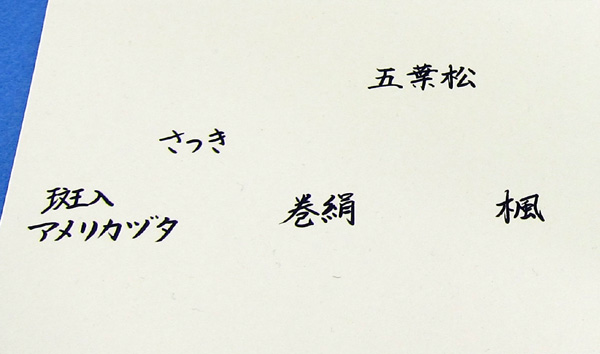 五葉松
さつき
斑入
アメリカヅタ
巻絹
楓